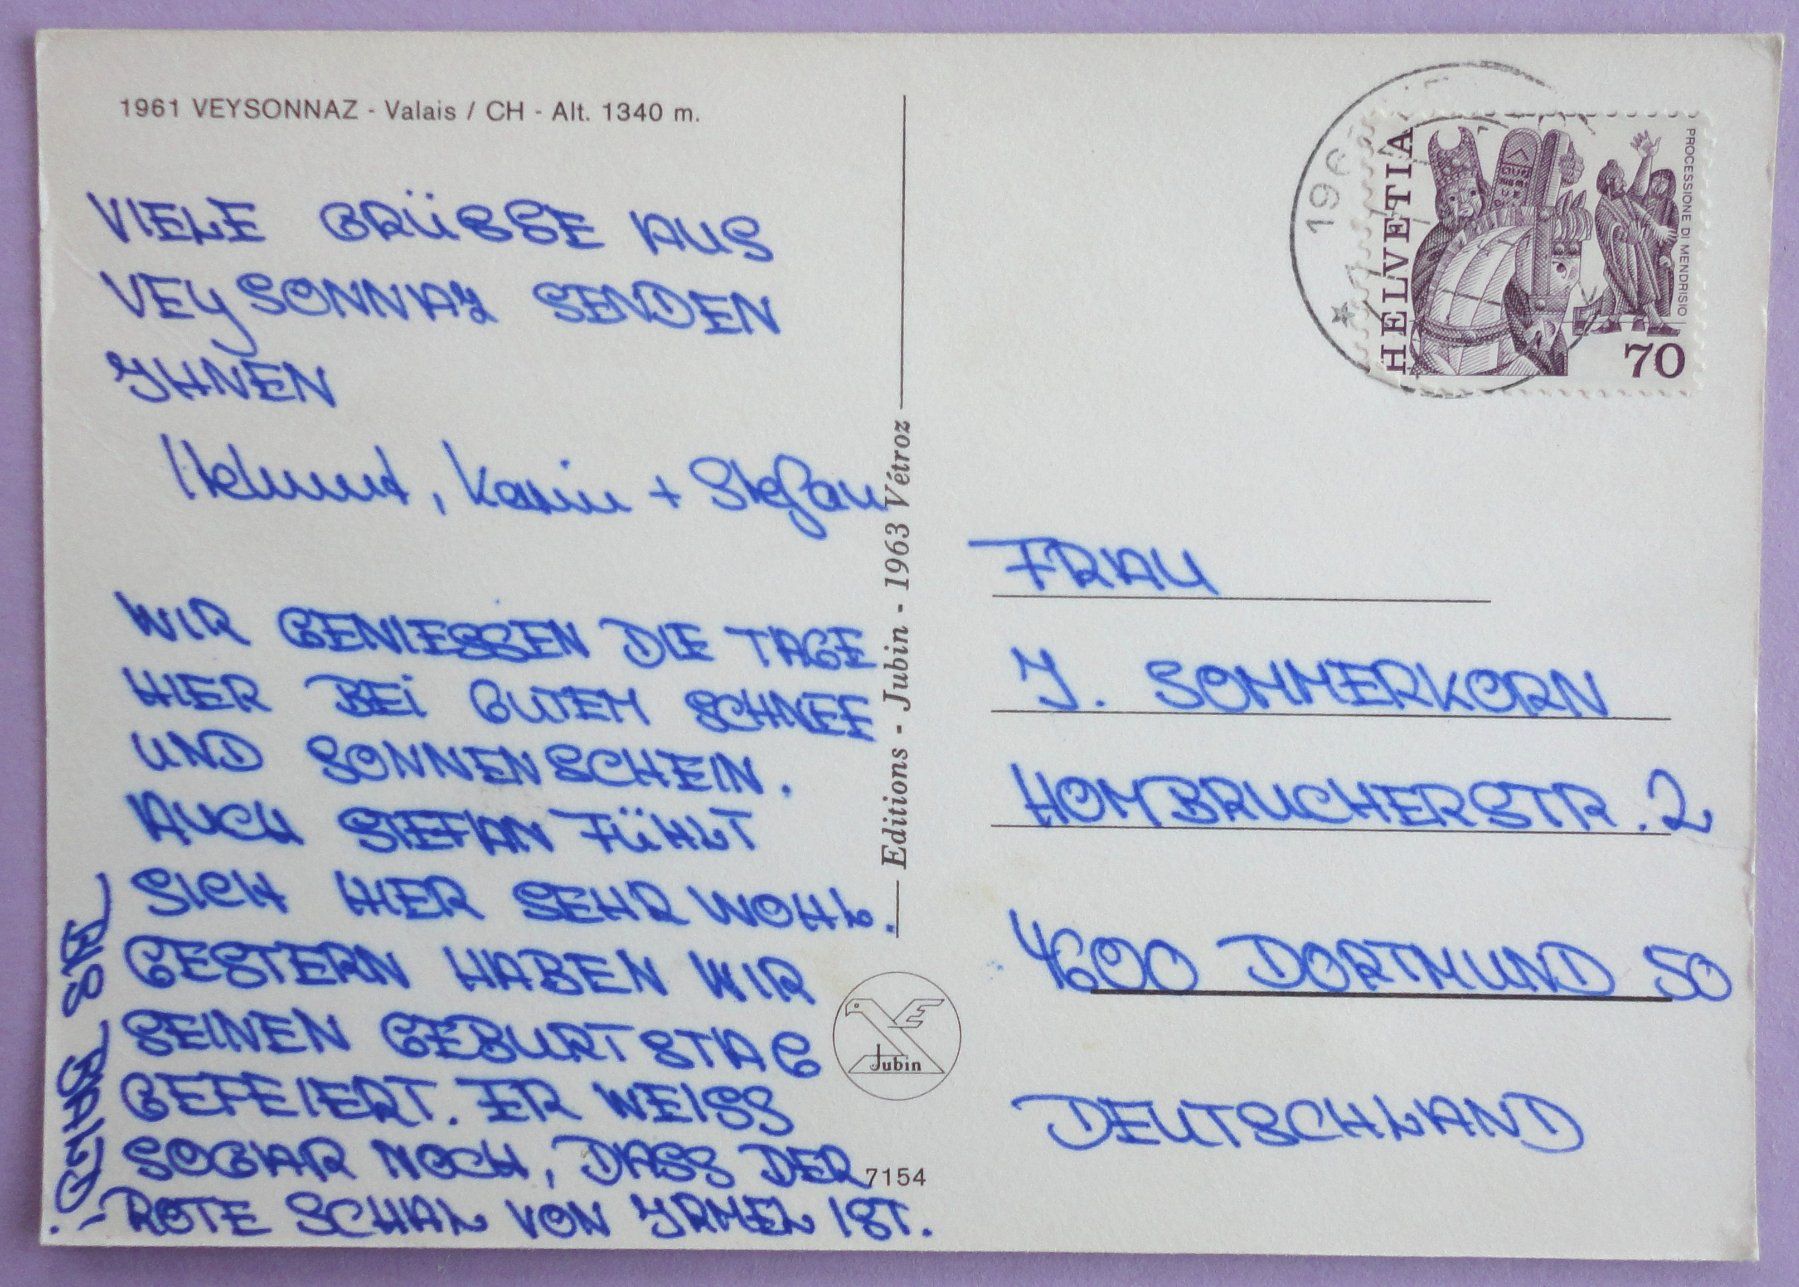 1961 VEYSONNAZ - Valais / CH - Alt. 1340 m.
VIELE GRÜSSE AUS
VEYSONNAZ SENDEN
IHNEN
Helmut, Karin + Stefan
WIR GENIESSEN DIE TAGE
HIER BEI GUTEM SCHNEE
UND SONNENSCHEIN.
AUCH STEFAN FÜHLT
SICH HIER SEHR WOHL.
GESTERN HABEN WIR
SEINEN GEBURTSTAG
GEFEIERT. ER WEISS
SOGAR NOCH, DASS DER
ROTE SCHAL VON IRMEL IST.
BIS BALD!
Editions - Jubin - 1963 Vétroz
Jubin
7154
196
HELVETIA
PROCESSIONE DI MENDRISIO
70
FRAU
I. SOMMERKORN
HOMBRUCHERSTR. 2
4600 DORTMUND 50
DEUTSCHLAND